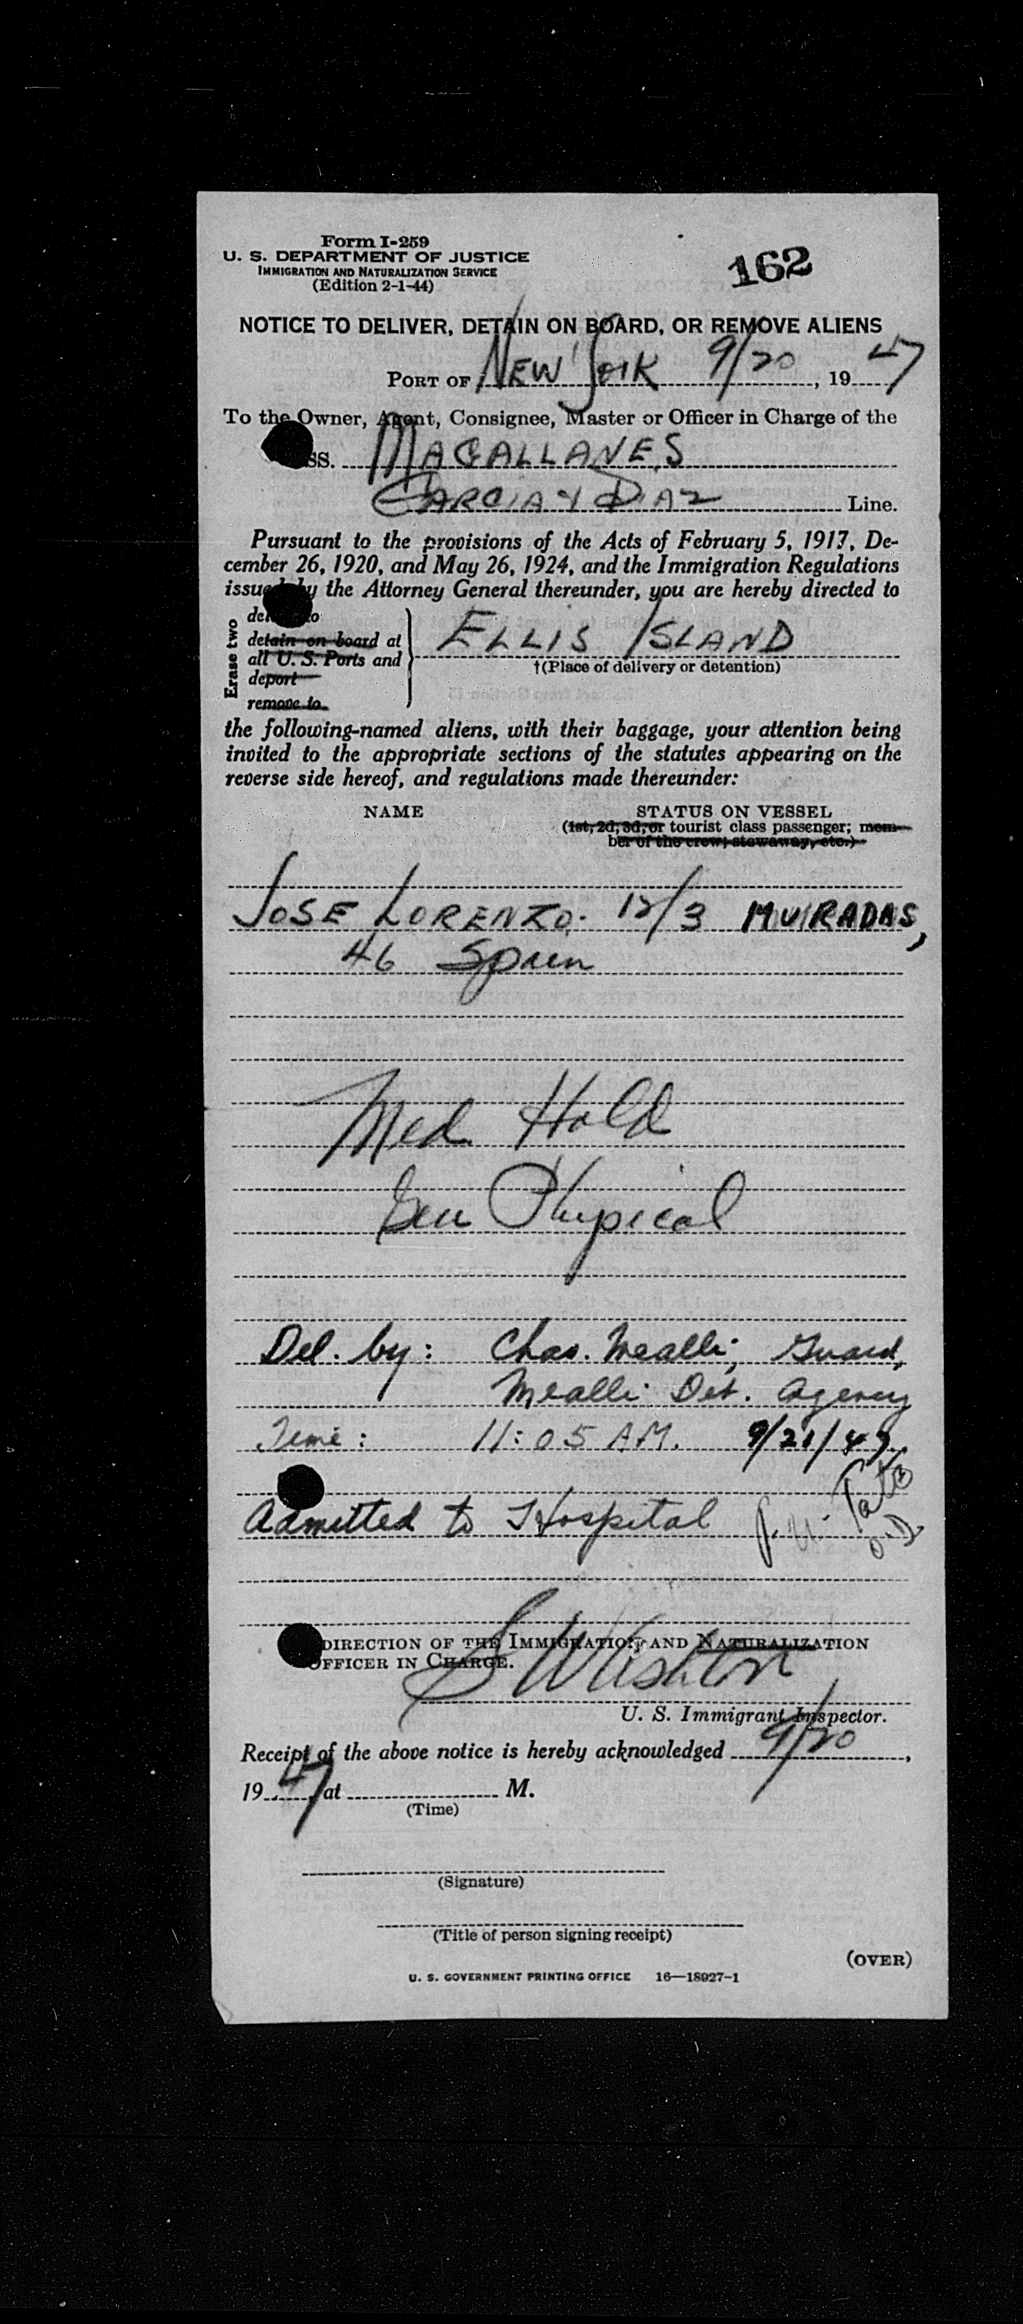 Form I-259
U. S. DEPARTMENT OF JUSTICE
IMMIGRATION AND NATURALIZATION SERVICE
(Edition 2-1-44)
162
NOTICE TO DELIVER, DETAIN ON BOARD, OR REMOVE ALIENS
PORT OF NEW YORK 9/20, 1947
To the Owner, Agent, Consignee, Master or Officer in Charge of the
SS. MAGALLANES
GARCIA Y DIAZ Line.
Pursuant to the provisions of the Acts of February 5, 1917, De-
cember 26, 1920, and May 26, 1924, and the Immigration Regulations
issued by the Attorney General thereunder, you are hereby directed to
Erase two
to
detain on board at
all U. S. Ports and
deport
remove to
ELLIS ISLAND
†(Place of delivery or detention)
the following-named aliens, with their baggage, your attention being
invited to the appropriate sections of the statutes appearing on the
reverse side hereof, and regulations made thereunder:
NAME STATUS ON VESSEL
(1st, 2d, 3d, or tourist class passenger; mem-
ber of the crew; stowaway, etc.)
JOSE LORENZO. 12/3 MUIRADAS,
46 Spain
Med Hold
Gen Physical
Del. by: Chas. Mealli, Guard,
Mealli Det. Agency
Time: 11:05 A.M. 9/21/47.
Admitted to Hospital
DIRECTION OF THE IMMIGRATION AND NATURALIZATION
OFFICER IN CHARGE.
U. S. Immigrant Inspector.
Receipt of the above notice is hereby acknowledged 9/20,
1947 at M.
(Time)
(Signature)
(Title of person signing receipt)
(OVER)
U. S. GOVERNMENT PRINTING OFFICE 16—18927-1